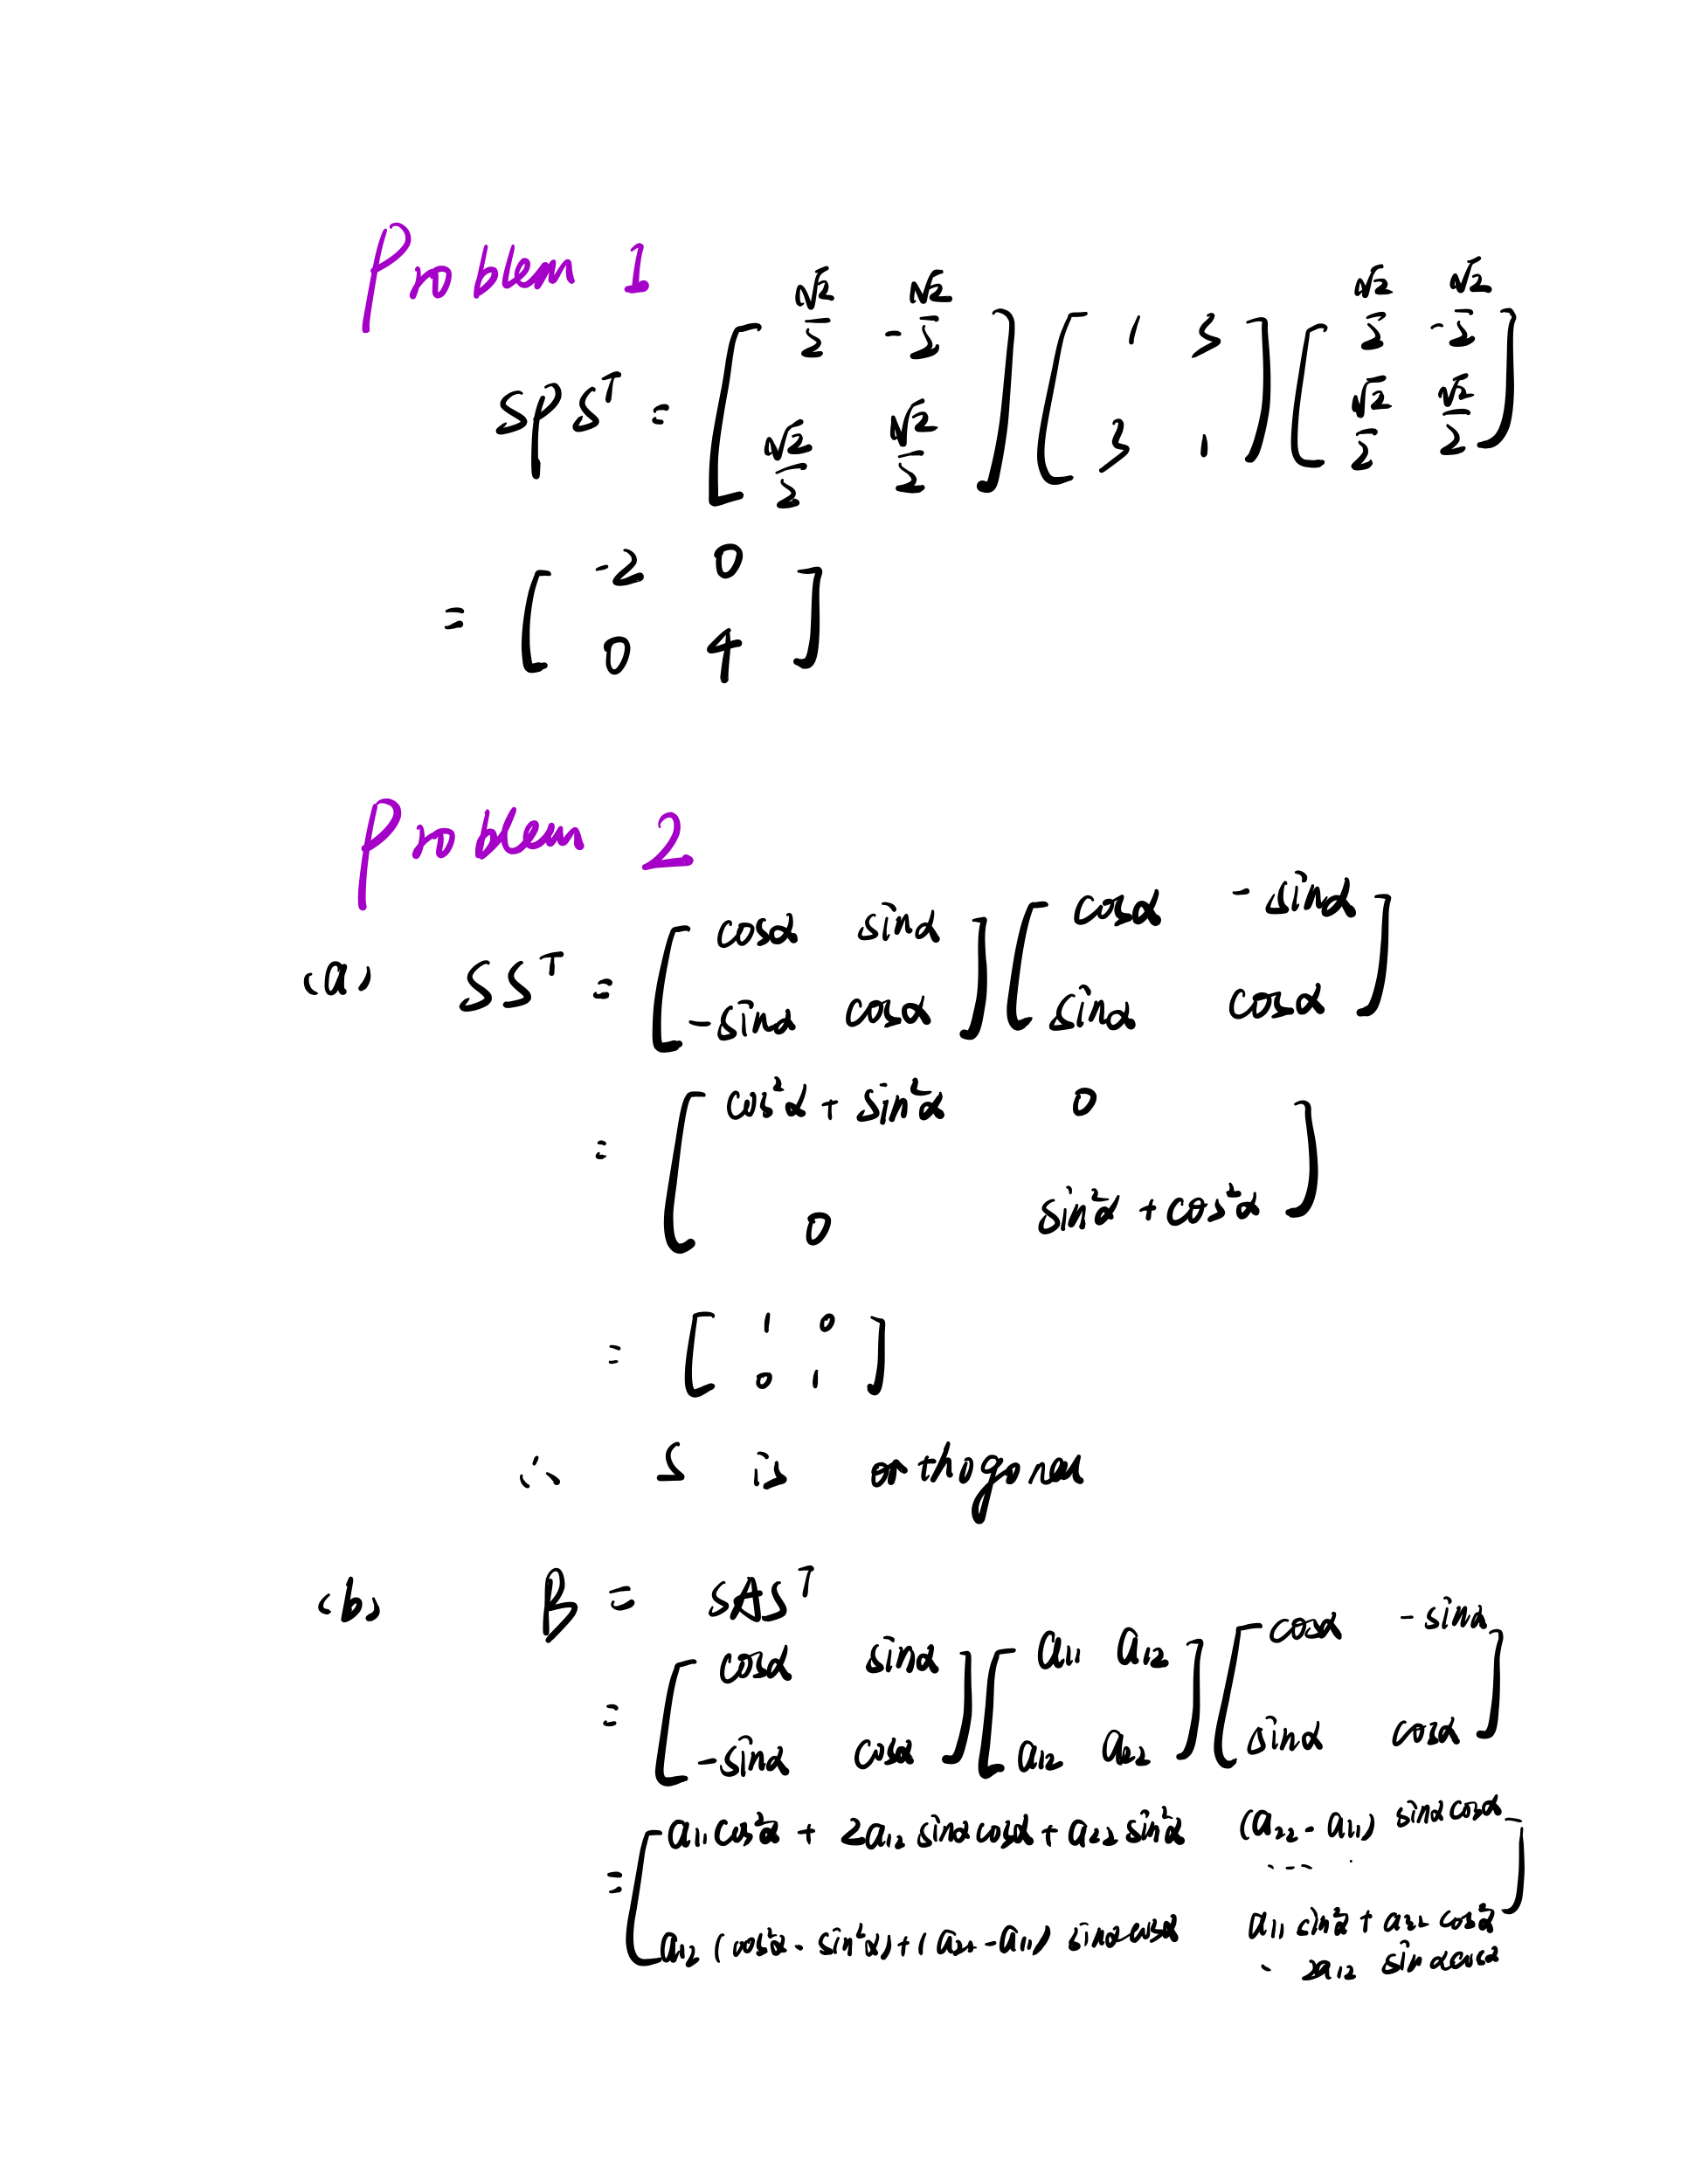 Problem 1
SPS^T = [ √2/2 -√2/2 ; √2/2 √2/2 ] [ 1 3 ; 3 1 ] [ √2/2 -√2/2 ; √2/2 √2/2 ]
= [ -2 0 ; 0 4 ]
Problem 2
(a) SS^T = [ cosα sinα ; -sinα cosα ] [ cosα -sinα ; sinα cosα ]
= [ cos²α + sin²α 0 ; 0 sin²α + cos²α ]
= [ 1 0 ; 0 1 ]
∴ S is orthogonal
(b) B = SAS^T
= [ cosα sinα ; -sinα cosα ] [ a₁₁ a₁₂ ; a₁₂ a₂₂ ] [ cosα -sinα ; sinα cosα ]
= [ a₁₁cos²α + 2a₁₂ sinαcosα + a₂₂ sin²α (a₂₂ - a₁₁) sinαcosα .... ; a₁₂ (cos²α - sin²α) + (a₂₂ - a₁₁) sinαcosα a₁₁ sin²α + a₂₂ cos²α - 2a₁₂ sinαcosα ]